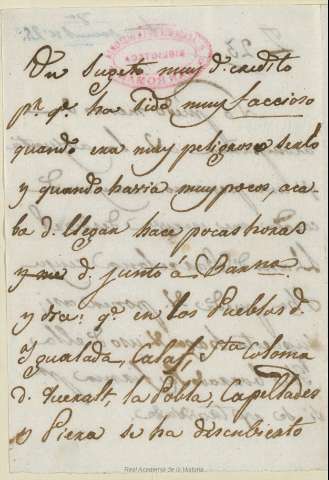 Un Sugeto muy d. credito
pr. q.e ha sido muy faccioso
quando era muy peligroso serlo
y quando havia muy pocos, aca-
ba d. llegar hace pocas horas
y me d. junto á Barna.
y dice q.e en los Pueblos d.
Ygualada, Calaf, Sta Coloma
d. Queralt, la Pobla, Capellades
y Piera se ha descubierto
BIBLIOTECA
Real Academia de la Historia